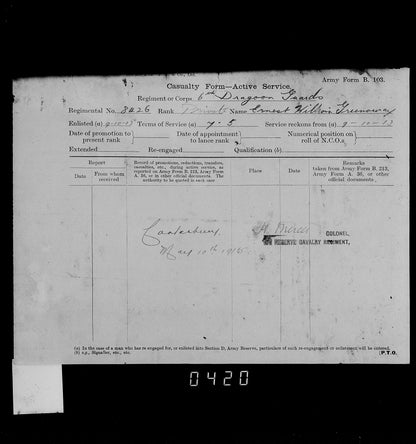 Army Form B. 103.
Casualty Form—Active Service.
Regiment or Corps 6th Dragoon Guards
Regimental No. 8426 Rank Private Name Ernest William Greenaway
Enlisted (a) 9-10-13 Terms of Service (a) 7.5 Service reckons from (a) 9-10-13
Date of promotion to present rank Date of appointment to lance rank Numerical position on roll of N.C.O.s
Extended Re-engaged Qualification (b)
Report
Date
From whom received
Record of promotions, reductions, transfers, casualties, etc., during active service, as reported on Army Form B. 213, Army Form A. 36, or in other official documents. The authority to be quoted in each case
Place
Date
Remarks
taken from Army Form B. 213, Army Form A. 36, or other official documents.
Canterbury
May 10th 1915
COLONEL,
RESERVE CAVALRY REGIMENT,
(a) In the case of a man who has re-engaged for, or enlisted into Section D, Army Reserve, particulars of such re-engagement or enlistment will be entered.
(b) e.g., Signaller, etc., etc.
[P.T.O.
0420